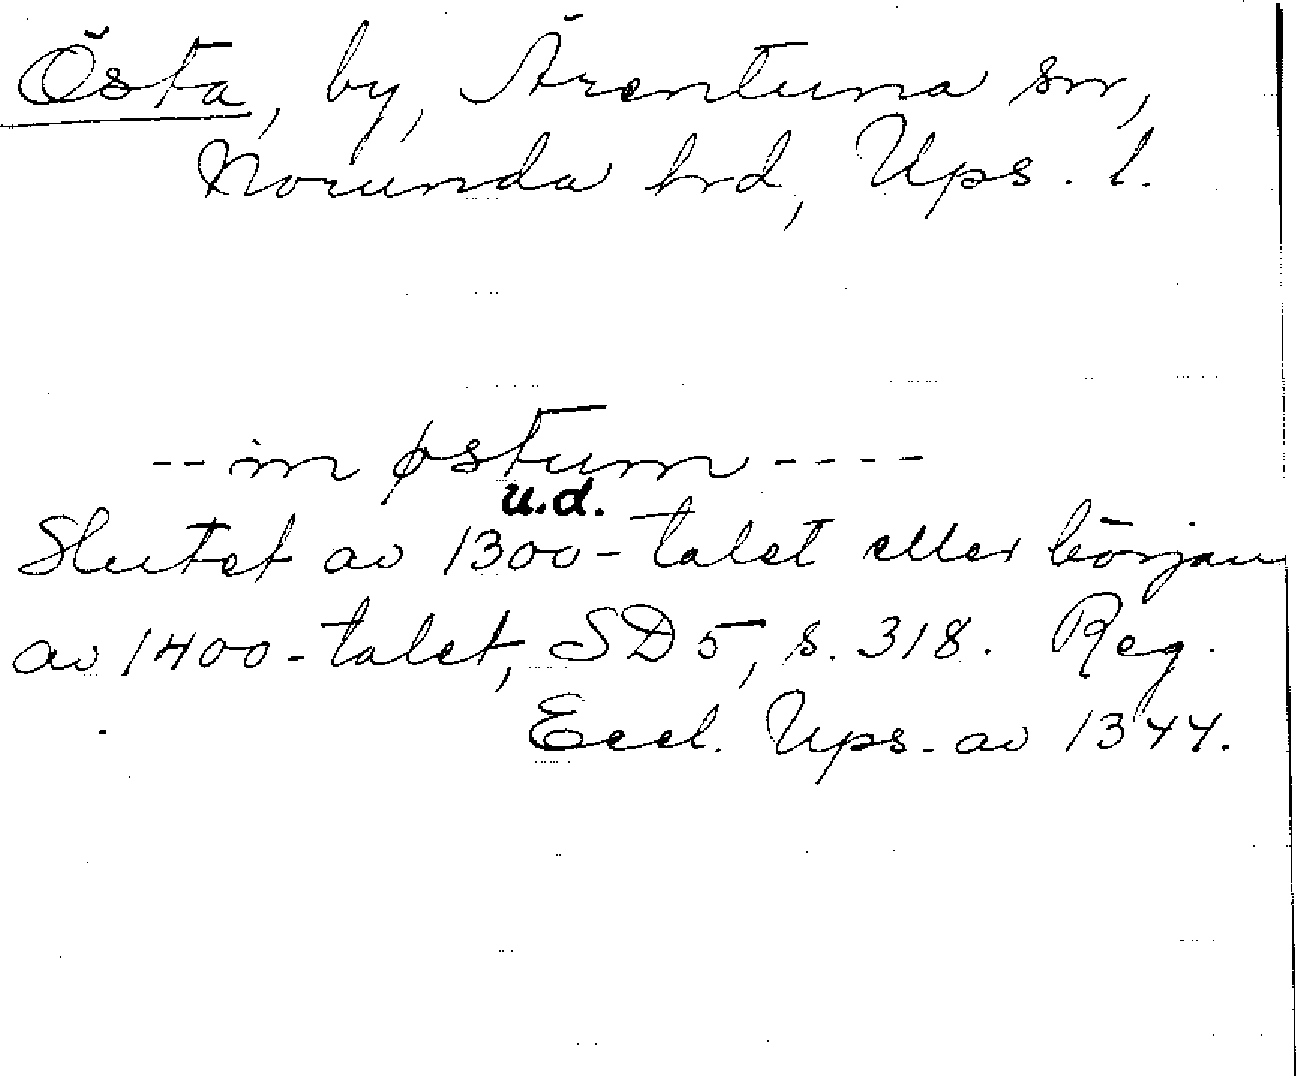 Östa, by, Ärentuna sn,
Norunda hrd, Ups. l.
-- in østum ----
u.d.
Slutet av 1300-talet eller början
av 1400-talet, SD 5, s. 318. Reg.
Eccl. Ups. av 1344.